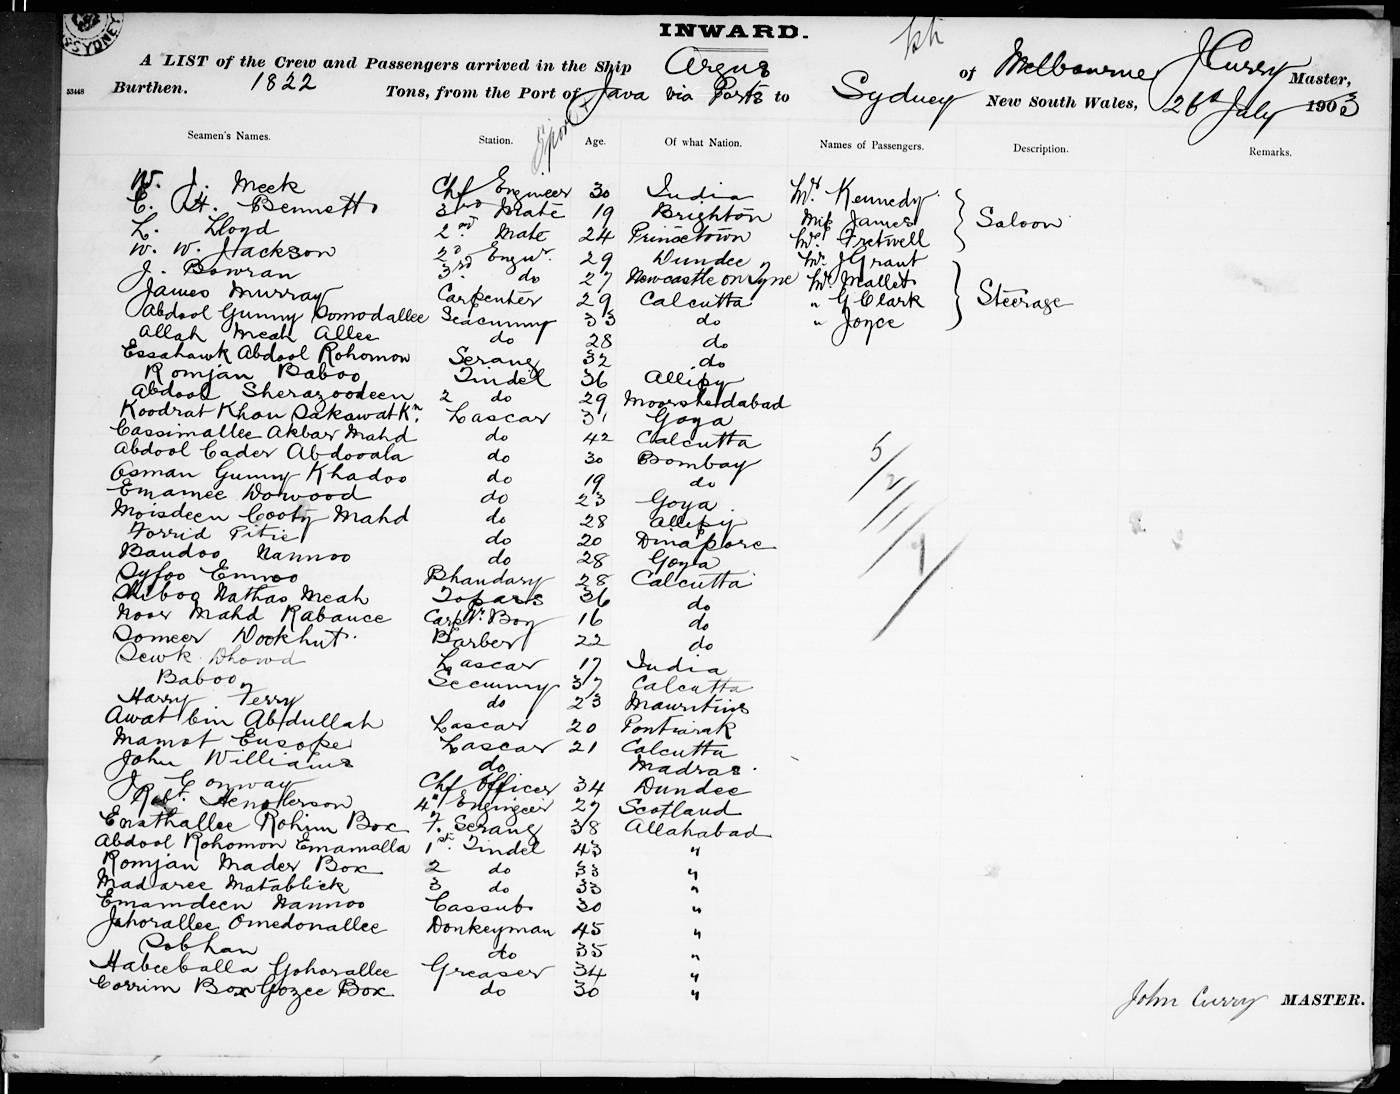 SYDNEY
INWARD.
A LIST of the Crew and Passengers arrived in the Ship Argus of Melbourne J Curry Master,
53448 Burthen. 1822 Tons, from the Port of Java via Ports to Sydney New South Wales, 26th July 1903
Seamen's Names. Station. Age. Of what Nation. Names of Passengers. Description. Remarks.
W. J. Meek Chf Engineer 30 India Mrs Kennedy
E. H. Bennett 3rd Mate 19 Brighton Miss James Saloon
L. Lloyd 2nd Mate 24 Princetown Fretwell
W. W. Jackson 2d Engnr. 29 Dundee Mr. J Grant
J. Bowran 3rd do 27 Newcastle on Tyne Mr Mallet
James Murray Carpenter 29 Calcutta " G Clark Steerage
Abdool Gunny Domodallee Seacunny 33 do " Joyce
Allah Meah Allee do 28 do
Essahawk Abdool Rohomon Serang 32 do
Romjan Baboo Tindel 36 Allipy
Abdool Sherazoodeen 2 do 29 Moorshedabad
Koodrat Khan Sakawat Kn. Lascar 31 Goya
Cassimallee Akbar Mahd do 42 Calcutta
Abdool Cader Abdooala do 30 Bombay
Osman Gunny Khadoo do 19 do
Emamee Dowood do 23 Goya
Moisdeen Cooty Mahd do 28 Allipy
Forrid Pitie do 20 Dinapore
Baudoo Nannoo do 28 Goya
Syfoo Emoo Bhandary 28 Calcutta
Shiboo Nathao Meah Topass 36 do
Noor Mahd Rabauce Carptr. Boy 16 do
Someer Nookhut. Barber 22 do
Sewk Dhowd Lascar 17 India
Baboo Secunny 37 Calcutta
Harry Ferry do 23 Mauritius
Awat bin Abdullah Lascar 20 Pontianak
Mamot Eusope Lascar 21 Calcutta
John Williams do Madras
J. Conway Chf Officer 34 Dundee
Robt. Henderson 4th Engineer 27 Scotland
Enathallee Rohim Box F. Serang 38 Allahabad
Abdool Rohomon Emamalla 1st. Tindel 43 "
Romjan Mader Box 2 do 33 "
Madaree Matablick 3 do 33 "
Emamdeen Nannoo Cassub 30 "
Jahorallee Omedonallee Donkeyman 45 "
Sobhan do 35 "
Habeeballa Gohorallee Greaser 34 "
Corrim Box Gozee Box do 30 "
John Curry MASTER.